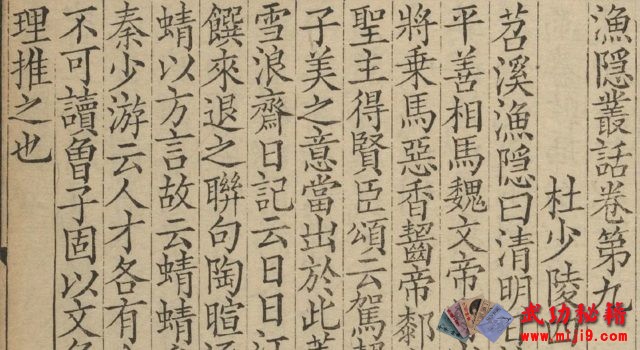 漁隱叢話卷第九
杜少陵
苕溪漁隱曰清明
平善相馬魏文帝
將乘馬惡香齧帝
聖主得賢臣頌云駕
子美之意當出於此
雪浪齋日記云日日江
饌來退之聯句陶暄
蜻以方言故云蜻蜻
秦少游云人才各有
不可讀曾子固以文
理推之也
武功秘籍
www.miji9.com